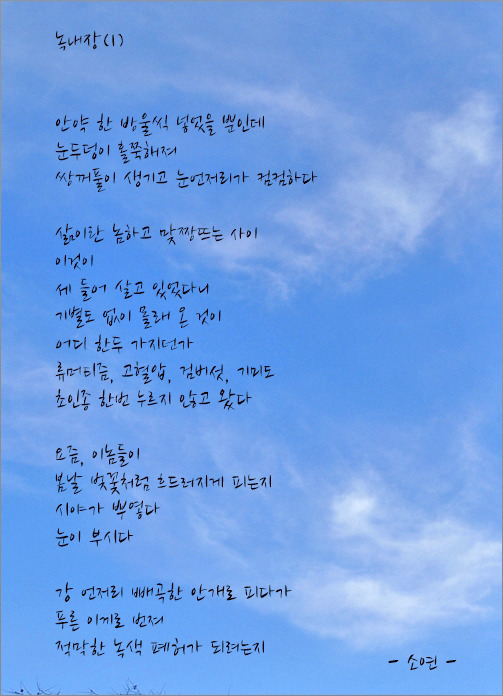 녹내장(1)
안약 한 방울씩 넣었을 뿐인데
눈두덩이 홀쭉해져
쌍꺼풀이 생기고 눈언저리가 컴컴하다
삶이란 놈하고 맞짱뜨는 사이
이것이
세 들어 살고 있었다니
기별도 없이 몰래 온 것이
어디 한두 가지던가
류머티즘, 고혈압, 검버섯, 기미도
초인종 한번 누르지 않고 왔다
요즘, 이놈들이
봄날 벚꽃처럼 흐드러지게 피는지
시야가 뿌옇다
눈이 부시다
강 언저리 빼곡한 안개로 피다가
푸른 이끼로 번져
적막한 녹색 폐허가 되려는지
- 소연 -